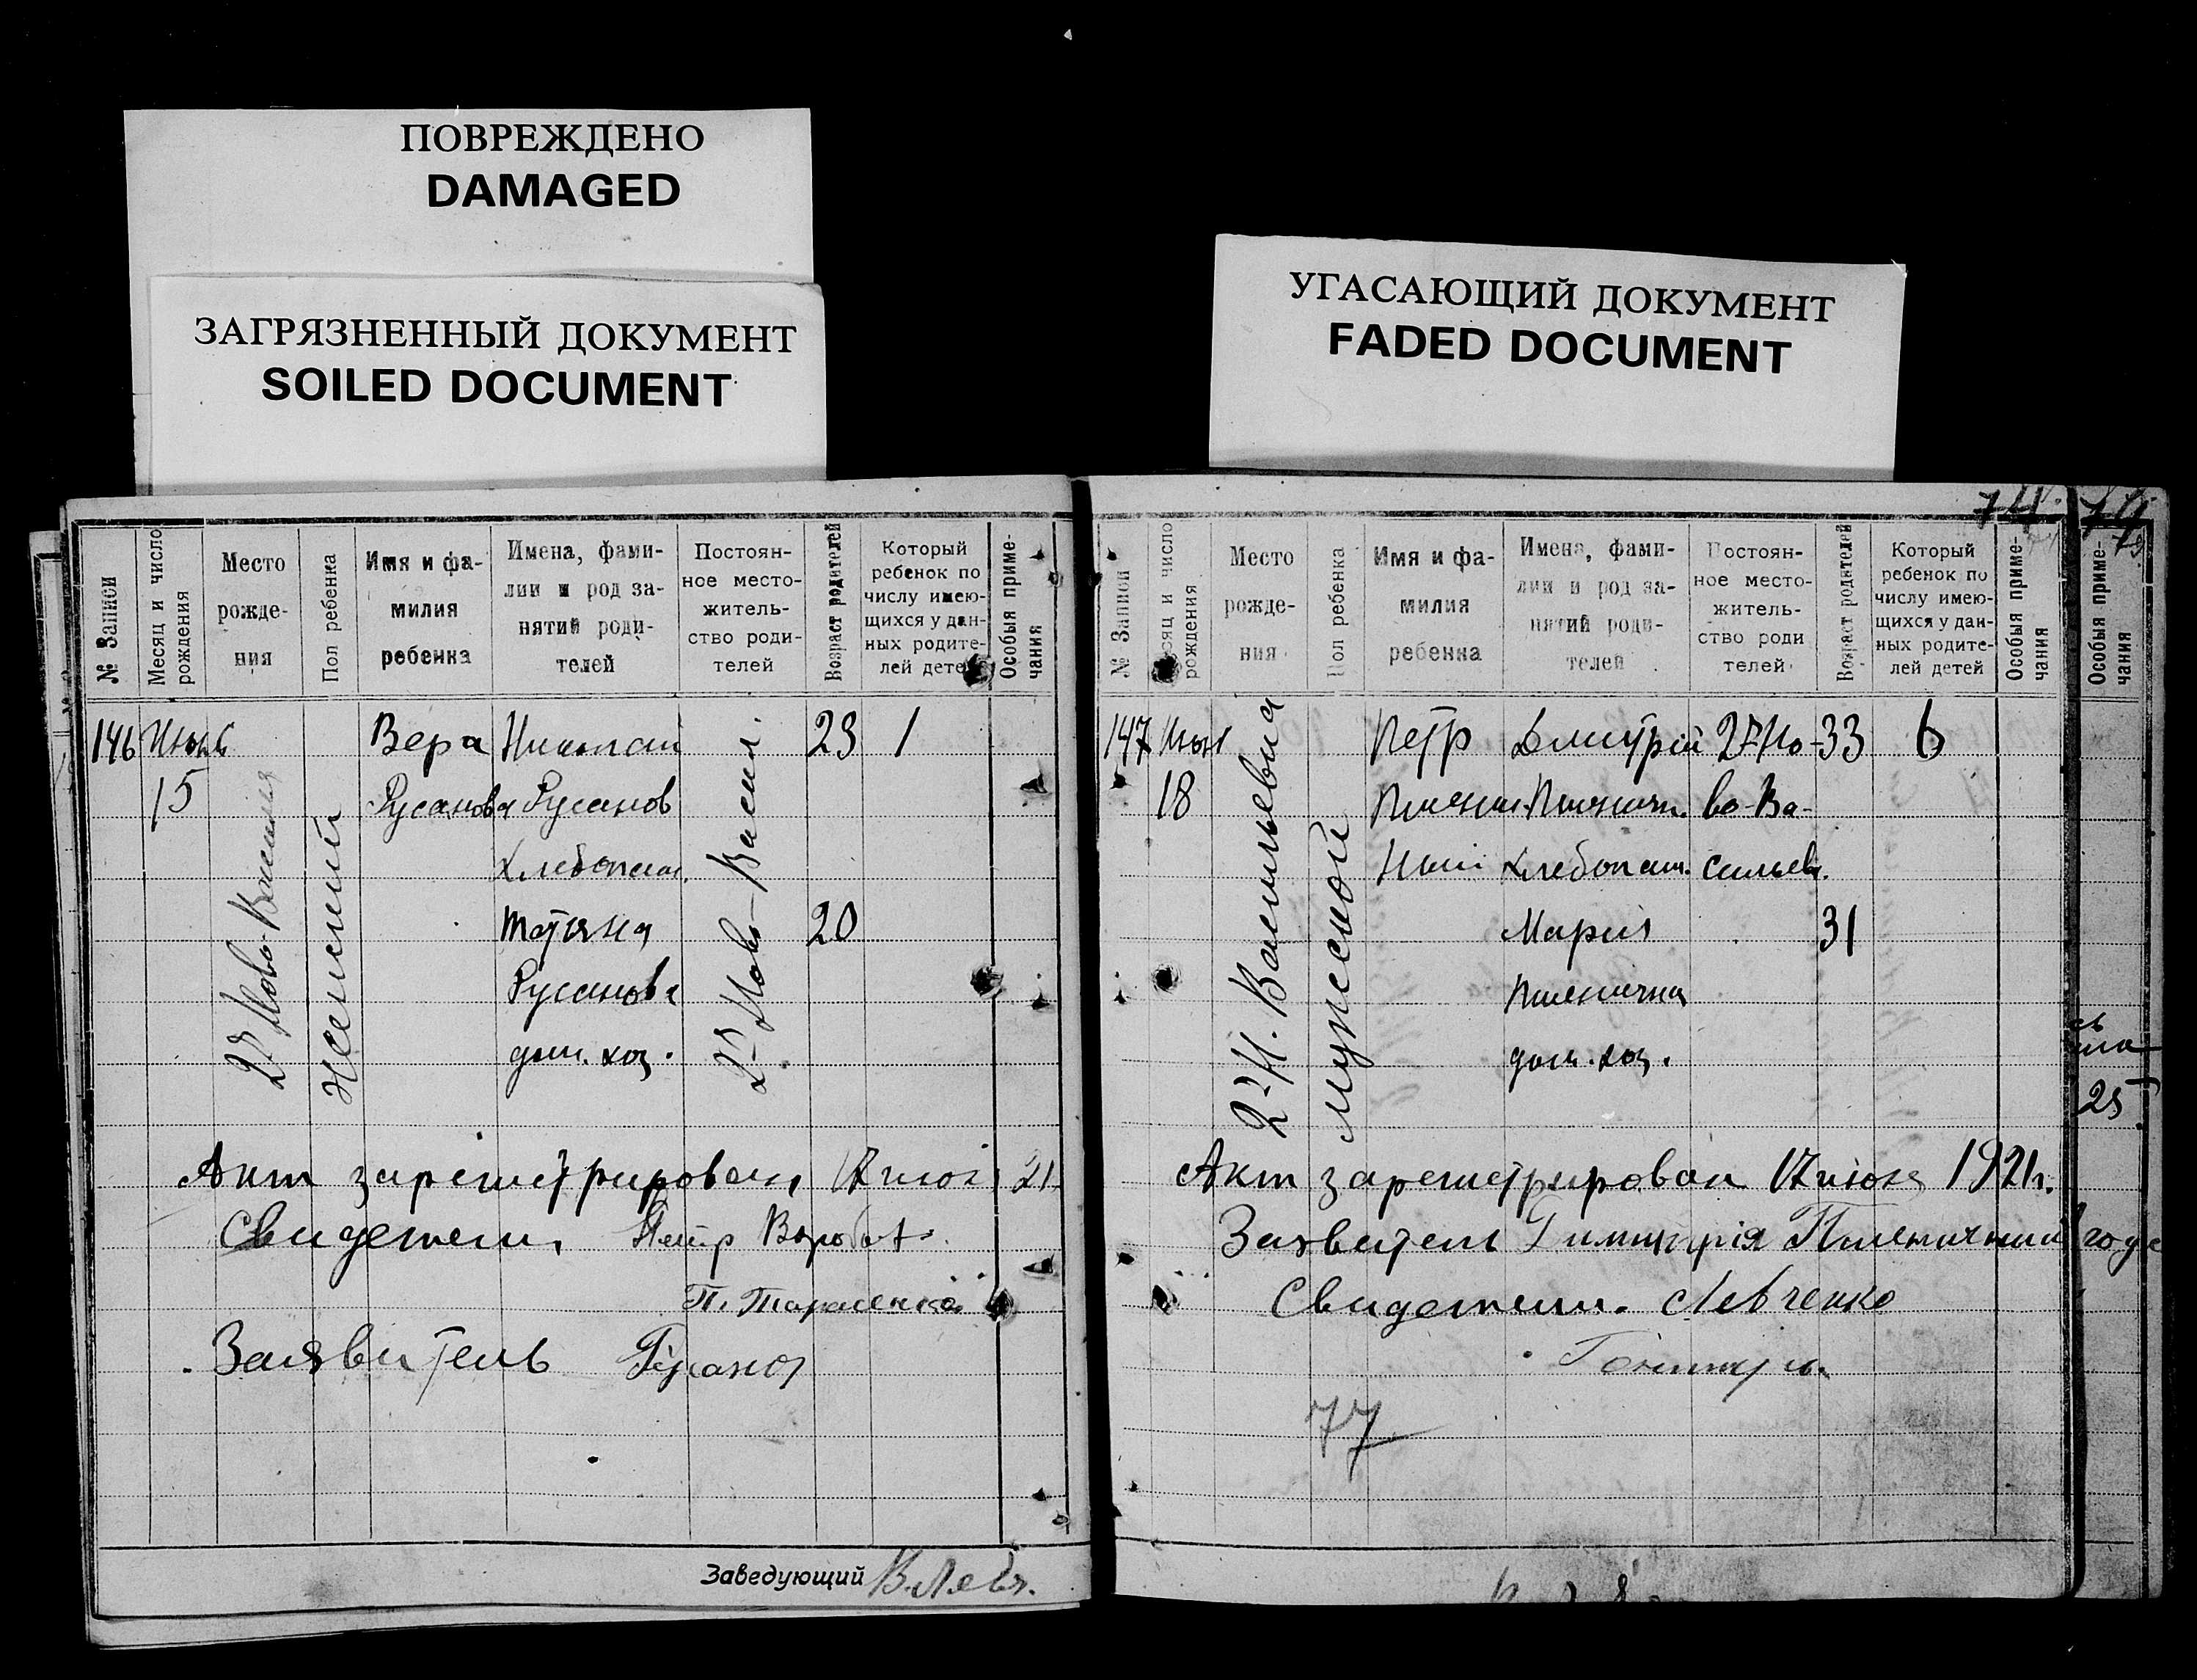 ПОВРЕЖДЕНО
DAMAGED
ЗАГРЯЗНЕННЫЙ ДОКУМЕНТ
SOILED DOCUMENT
УГАСАЮЩИЙ ДОКУМЕНТ
FADED DOCUMENT
№ Записи
Месяц и число рождения
Место рожде-
ния
Пол ребенка
Имя и фа-
милия
ребенка
Имена, фами-
лии и род за-
нятий роди-
телей
Постоян-
ное место-
житель-
ство роди-
телей
Возраст родителей
Который
ребенок по
числу имею-
щихся у дан-
ных родите-
лей детей
Особыя приме-
чания
146 Июнь Вера Николай 23 1
15 Русанова Русанов
Хлебопаш.
Татьяна 20
Русанова
дом. хоз.
2я Ново-Василья
женский
2-я Ново-Васил.
Акт зарегистрирован 17 июня 21
Свидетели Петр
П. Тарасенко
Заявитель Русанов
Заведующий В. Левч.
74
№ Записи
есяц и число
рождения
Место
рожде-
ния
Пол ребенка
Имя и фа-
милия
ребенка
Имена, фами-
лии и род за-
нятий роди-
телей
Постоян-
ное место-
житель-
ство роди
телей
Возраст родителей
Который
ребенок по
числу имею-
щихся у дан-
ных родите-
лей детей
Особыя приме-
чания
Особыя приме-
чания
147 Июн Петр Дмитрий 2-Но- 33 6
18 Пшенич Пшеничн. во-Ва-
ный Хлебопаш. сильев.
Мария 31
Пшенична
дом. хоз.
2-Н. Васильевка
мужской
25
Акт зарегистрирован 17 июня 1921г.
Заявитель Димитрія Пшеничный
году
Свидетели. Левченко
Гонтарь
77